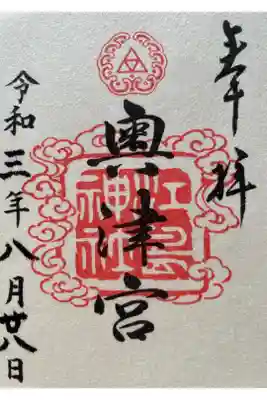 奉拝
奧津宮
江島
神社
令和三年八月廿八日